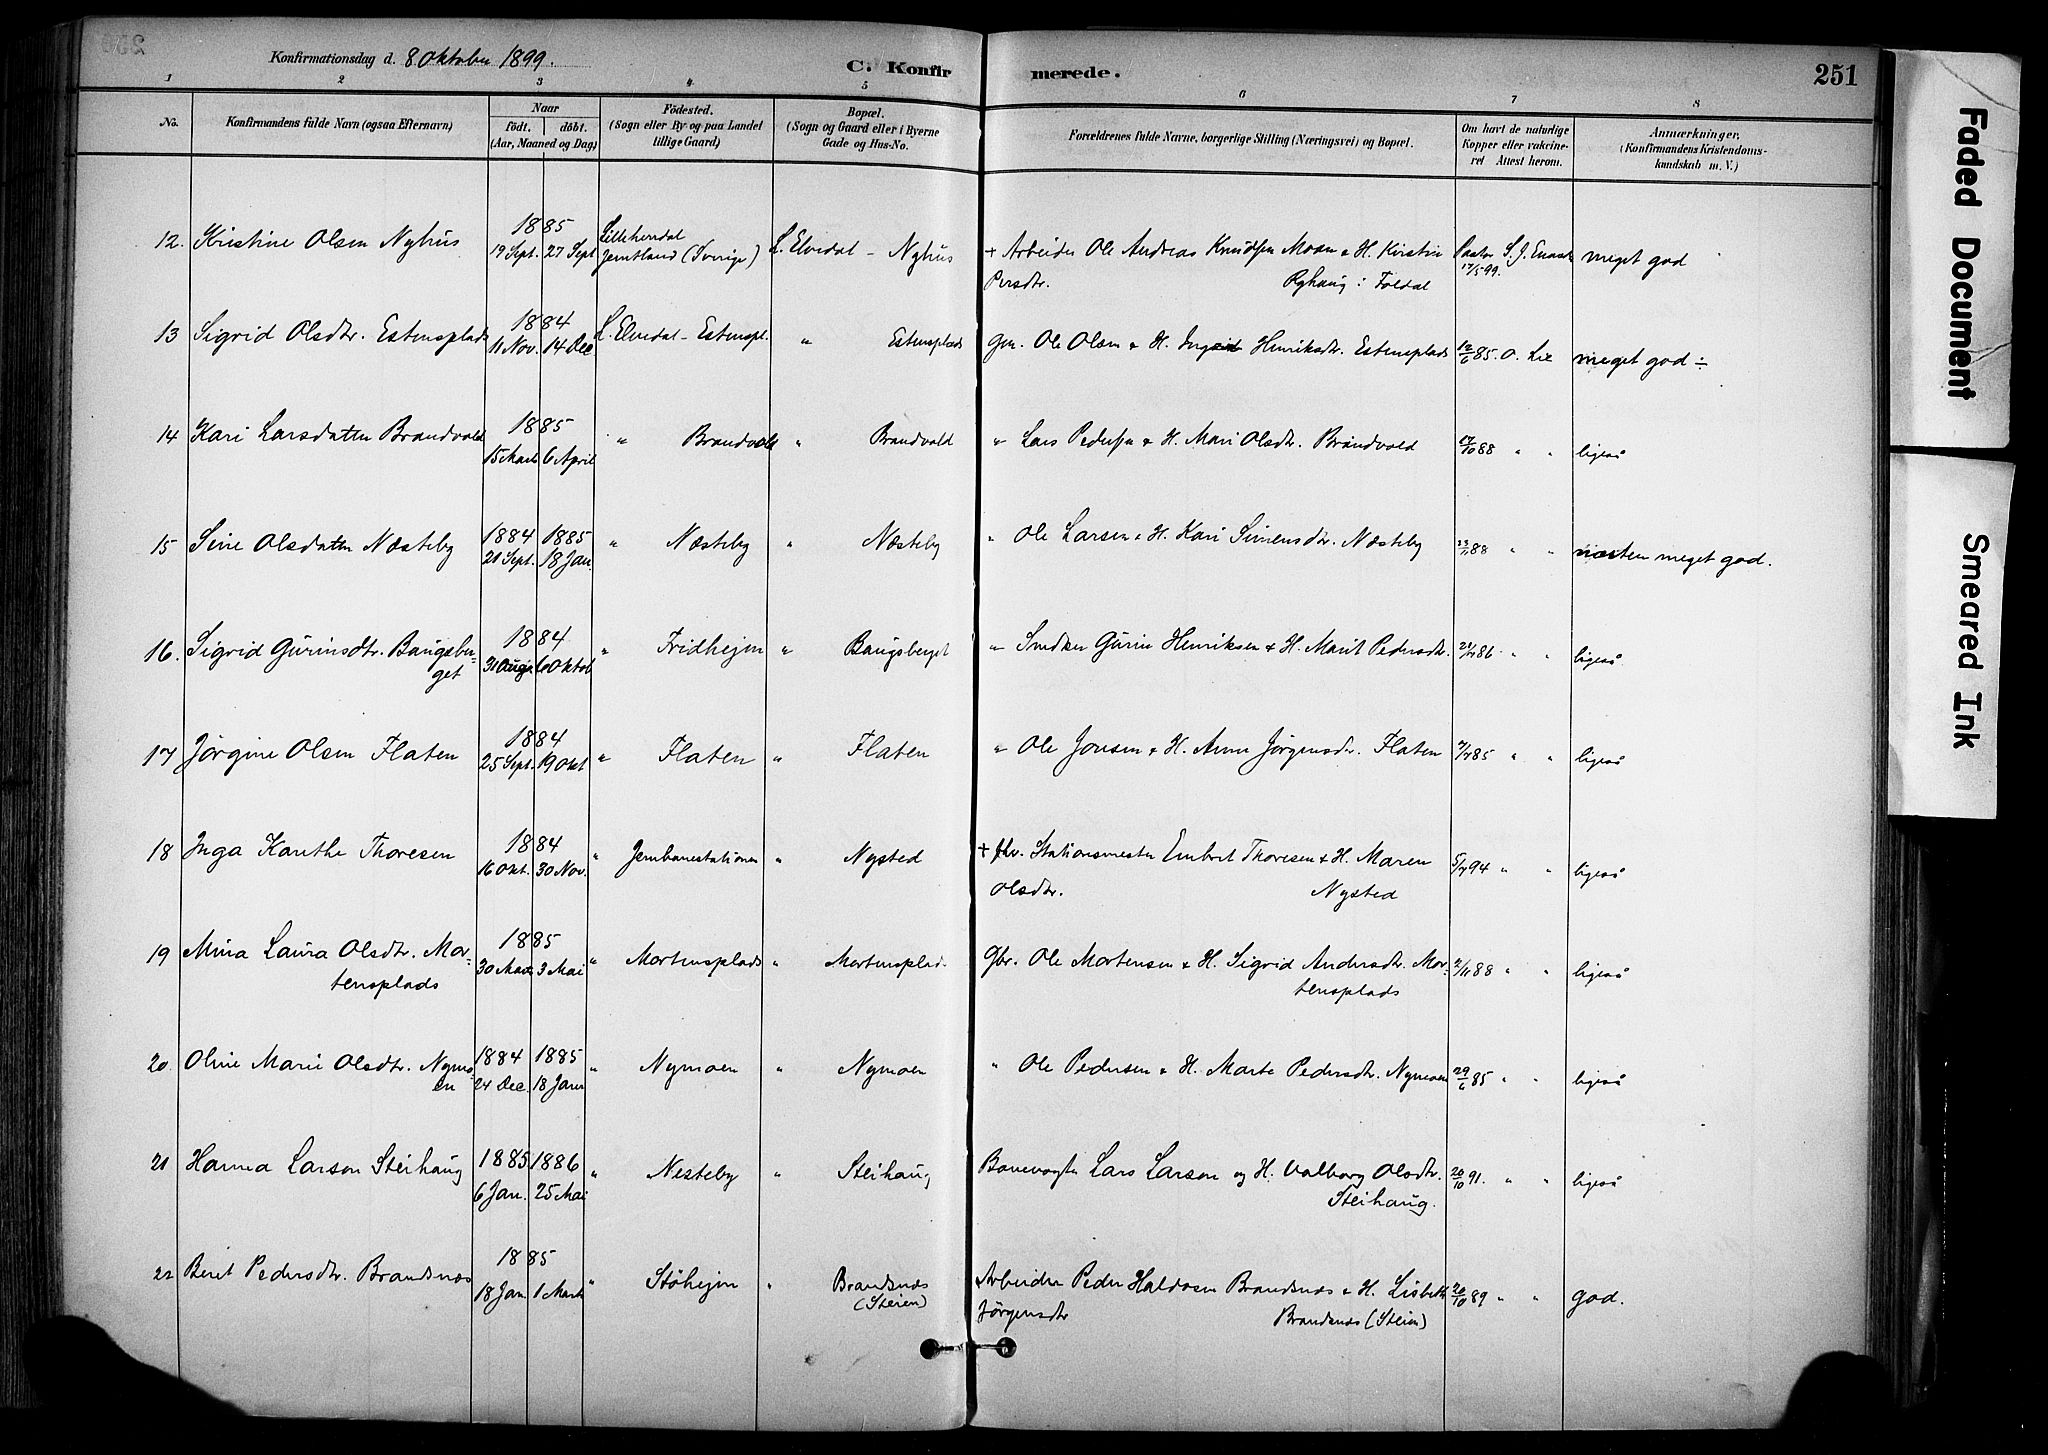 Konfirmationsdag d. 8 Oktober 1899.
C. Konfirmerede.
251
1 2 3 4 5 6 7 8
No.
Konfirmandens fulde Navn (ogsaa Efternavn)
Naar
födt. döbt.
(Aar, Maaned og Dag)
Födested.
(Sogn eller By og paa Landet
tillige Gaard)
Bopæl.
(Sogn og Gaard eller i Byerne
Gade og Hus-No.
Forældrenes fulde Navne, borgerlige Stilling (Næringsvei) og Bopæl.
Om havt de naturlige
Kopper eller vakcine-
ret Attest herom.
Anmærkninger.
(Konfirmandens Kristendoms-
kundskab m. V.)
12. Kristine Olsen Nyhus 1885 19 Sept. 27 Sept Lillehendal Jemtland (Sverige) L. Elvedal - Nyhus + Arbeider Ole Andreas Knudsen Moan & H. Kirstin Pastor S. J. 17/5 99. meget god
Persdtr. Ryhaug i Foldal
13 Sigrid Olsdtr. Estensplads 1884 11 Nov. 14 Dec L. Elvedal - Estenspl. " Estensplads Gm. Ole Olsen & H. Ingrid Henriksdtr. Estensplads 12/6 85. O. Lie meget god ÷
14 Kari Larsdatter Brandvold 1885 15 Marts 6 April " Brandvold " Brandvold " Lars Pedersen & H. Mari Olsdtr. Brandvold 17/10 88 " " ligeså
15 Sine Olsdatter Næsteby 1884 1885 21 Sept. 18 Jan. " Næsteby " Næsteby " Ole Larsen & H. Kari Simensdtr. Næsteby 23/11 88 " " næsten meget god.
16. Sigrid Gurinsdtr. Baugsber- 1884 31 Aug. 6 Oktob " Fridhejm " Baugsberget " Snedker Gurin Henriksen & H. Marit Pedersdtr. 86 " " ligeså.
get
17 Jørgine Olsen Flaten 1884 25 Sept. 19 Okt " Flaten " Flaten " Ole Jonsen & H. Anne Jørgensdtr. Flaten 85 " " ligeså
18 Inga Kanthe Thoresen 1884 16 Okt. 30 Nov. " Jernbanestationen " Nysted + fhv. Stationsmester Embret Thoresen & H. Maren 94 " " ligeså
Olsdtr. Nysted
19 Mina Laura Olsdtr. Mor- 1885 30 Marts 3 Mai " Mortensplads " Mortensplad. Gbr. Ole Mortensen & H. Sigrid Andersdtr. Mor- 2/11 88 " " ligeså
tensplads tensplads
20. Oline Marie Olsdtr. Nymo- 1884 1885 24 Dec. 18 Janr " Nymoen " Nymoen " Ole Pedersen & H. Marte Pedersdtr. Nymoen 29/6 85 " " ligeså
en
21 Hanna Larson Steihaug 1885 1886 6 Jan. 25 Mai " Nesteby " Steihaug Banevogter Lars Larson og H. Valborg Olsdtr. 20/10 91. " " ligeså
Steihaug.
22 Beret Pedersdtr. Brandsnæs 1885 18 Jan. 1 Marts " Stöhejm " Brandsnæs (Steien) Arbeider Peder Haldosen Brandsnæs & H. Lisbeth 20/10 89 " " god.
Jørgensdtr Brandsnæs (Steien)
Faded Document
Smeared Ink